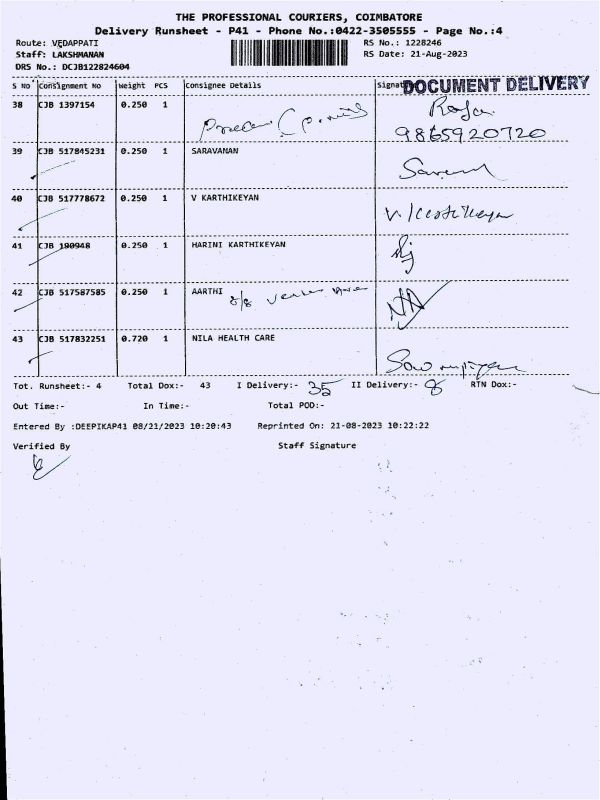 THE PROFESSIONAL COURIERS, COIMBATORE
Delivery Runsheet - P41 - Phone No.:0422-3505555 - Page No.:4
Route: VEDAPPATI RS No.: 1228246
Staff: LAKSHMANAN RS Date: 21-Aug-2023
DRS No.: DCJB122824604
DOCUMENT DELIVERY
S No Consignment No Weight PCS Consignee Details Signat
38 CJB 1397154 0.250 1
9865920720
39 CJB 517845231 0.250 1 SARAVANAN
40 CJB 517778672 0.250 1 V KARTHIKEYAN V. Karthikeyan
41 CJB 190948 0.250 1 HARINI KARTHIKEYAN
42 CJB 517587585 0.250 1 AARTHI
43 CJB 517832251 0.720 1 NILA HEALTH CARE
Tot. Runsheet:- 4 Total Dox:- 43 I Delivery:- 35 II Delivery:- 8 RTN Dox:-
Out Time:- In Time:- Total POD:-
Entered By :DEEPIKAP41 08/21/2023 10:20:43 Reprinted On: 21-08-2023 10:22:22
Verified By Staff Signature